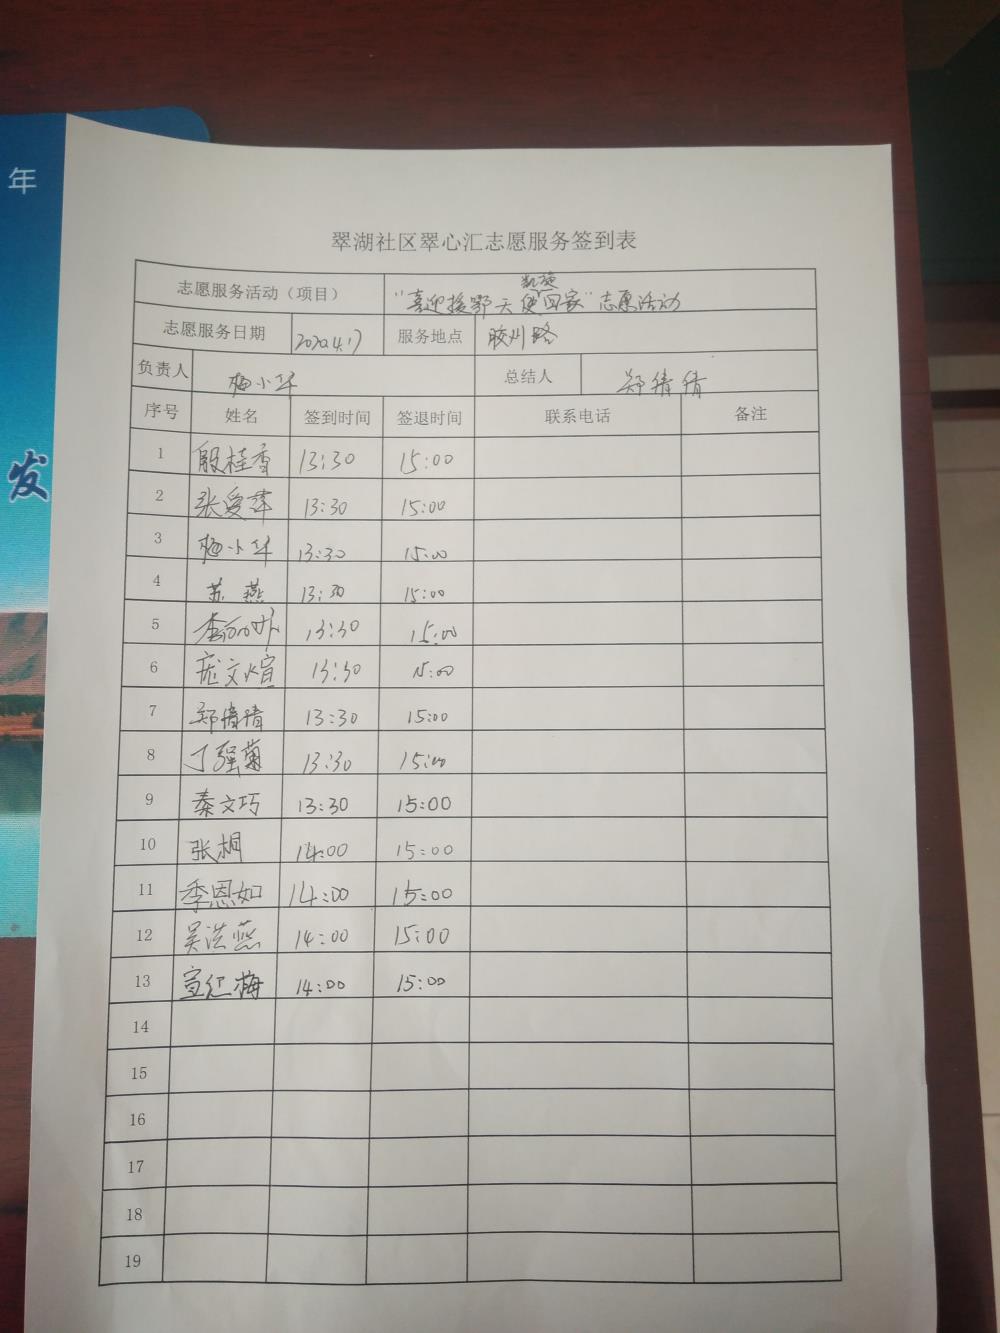 年
发
翠湖社区翠心汇志愿服务签到表
志愿服务活动（项目） “喜迎援鄂天使凯旋回家”志愿活动
志愿服务日期 2020.4.17 服务地点 胶州路
负责人 梅小华 总结人 郑倩倩
序号 姓名 签到时间 签退时间 联系电话 备注
1 殷桂香 13:30 15:00
2 张爱萍 13:30 15:00
3 梅小华 13:30 15:00
4 苏燕 13:30 15:00
5 13:30 15:00
6 庞文煊 13:30 15:00
7 郑倩倩 13:30 15:00
8 丁强菊 13:30 15:00
9 秦文巧 13:30 15:00
10 张桐 14:00 15:00
11 季恩如 14:00 15:00
12 吴洪燕 14:00 15:00
13 宣红梅 14:00 15:00
14
15
16
17
18
19